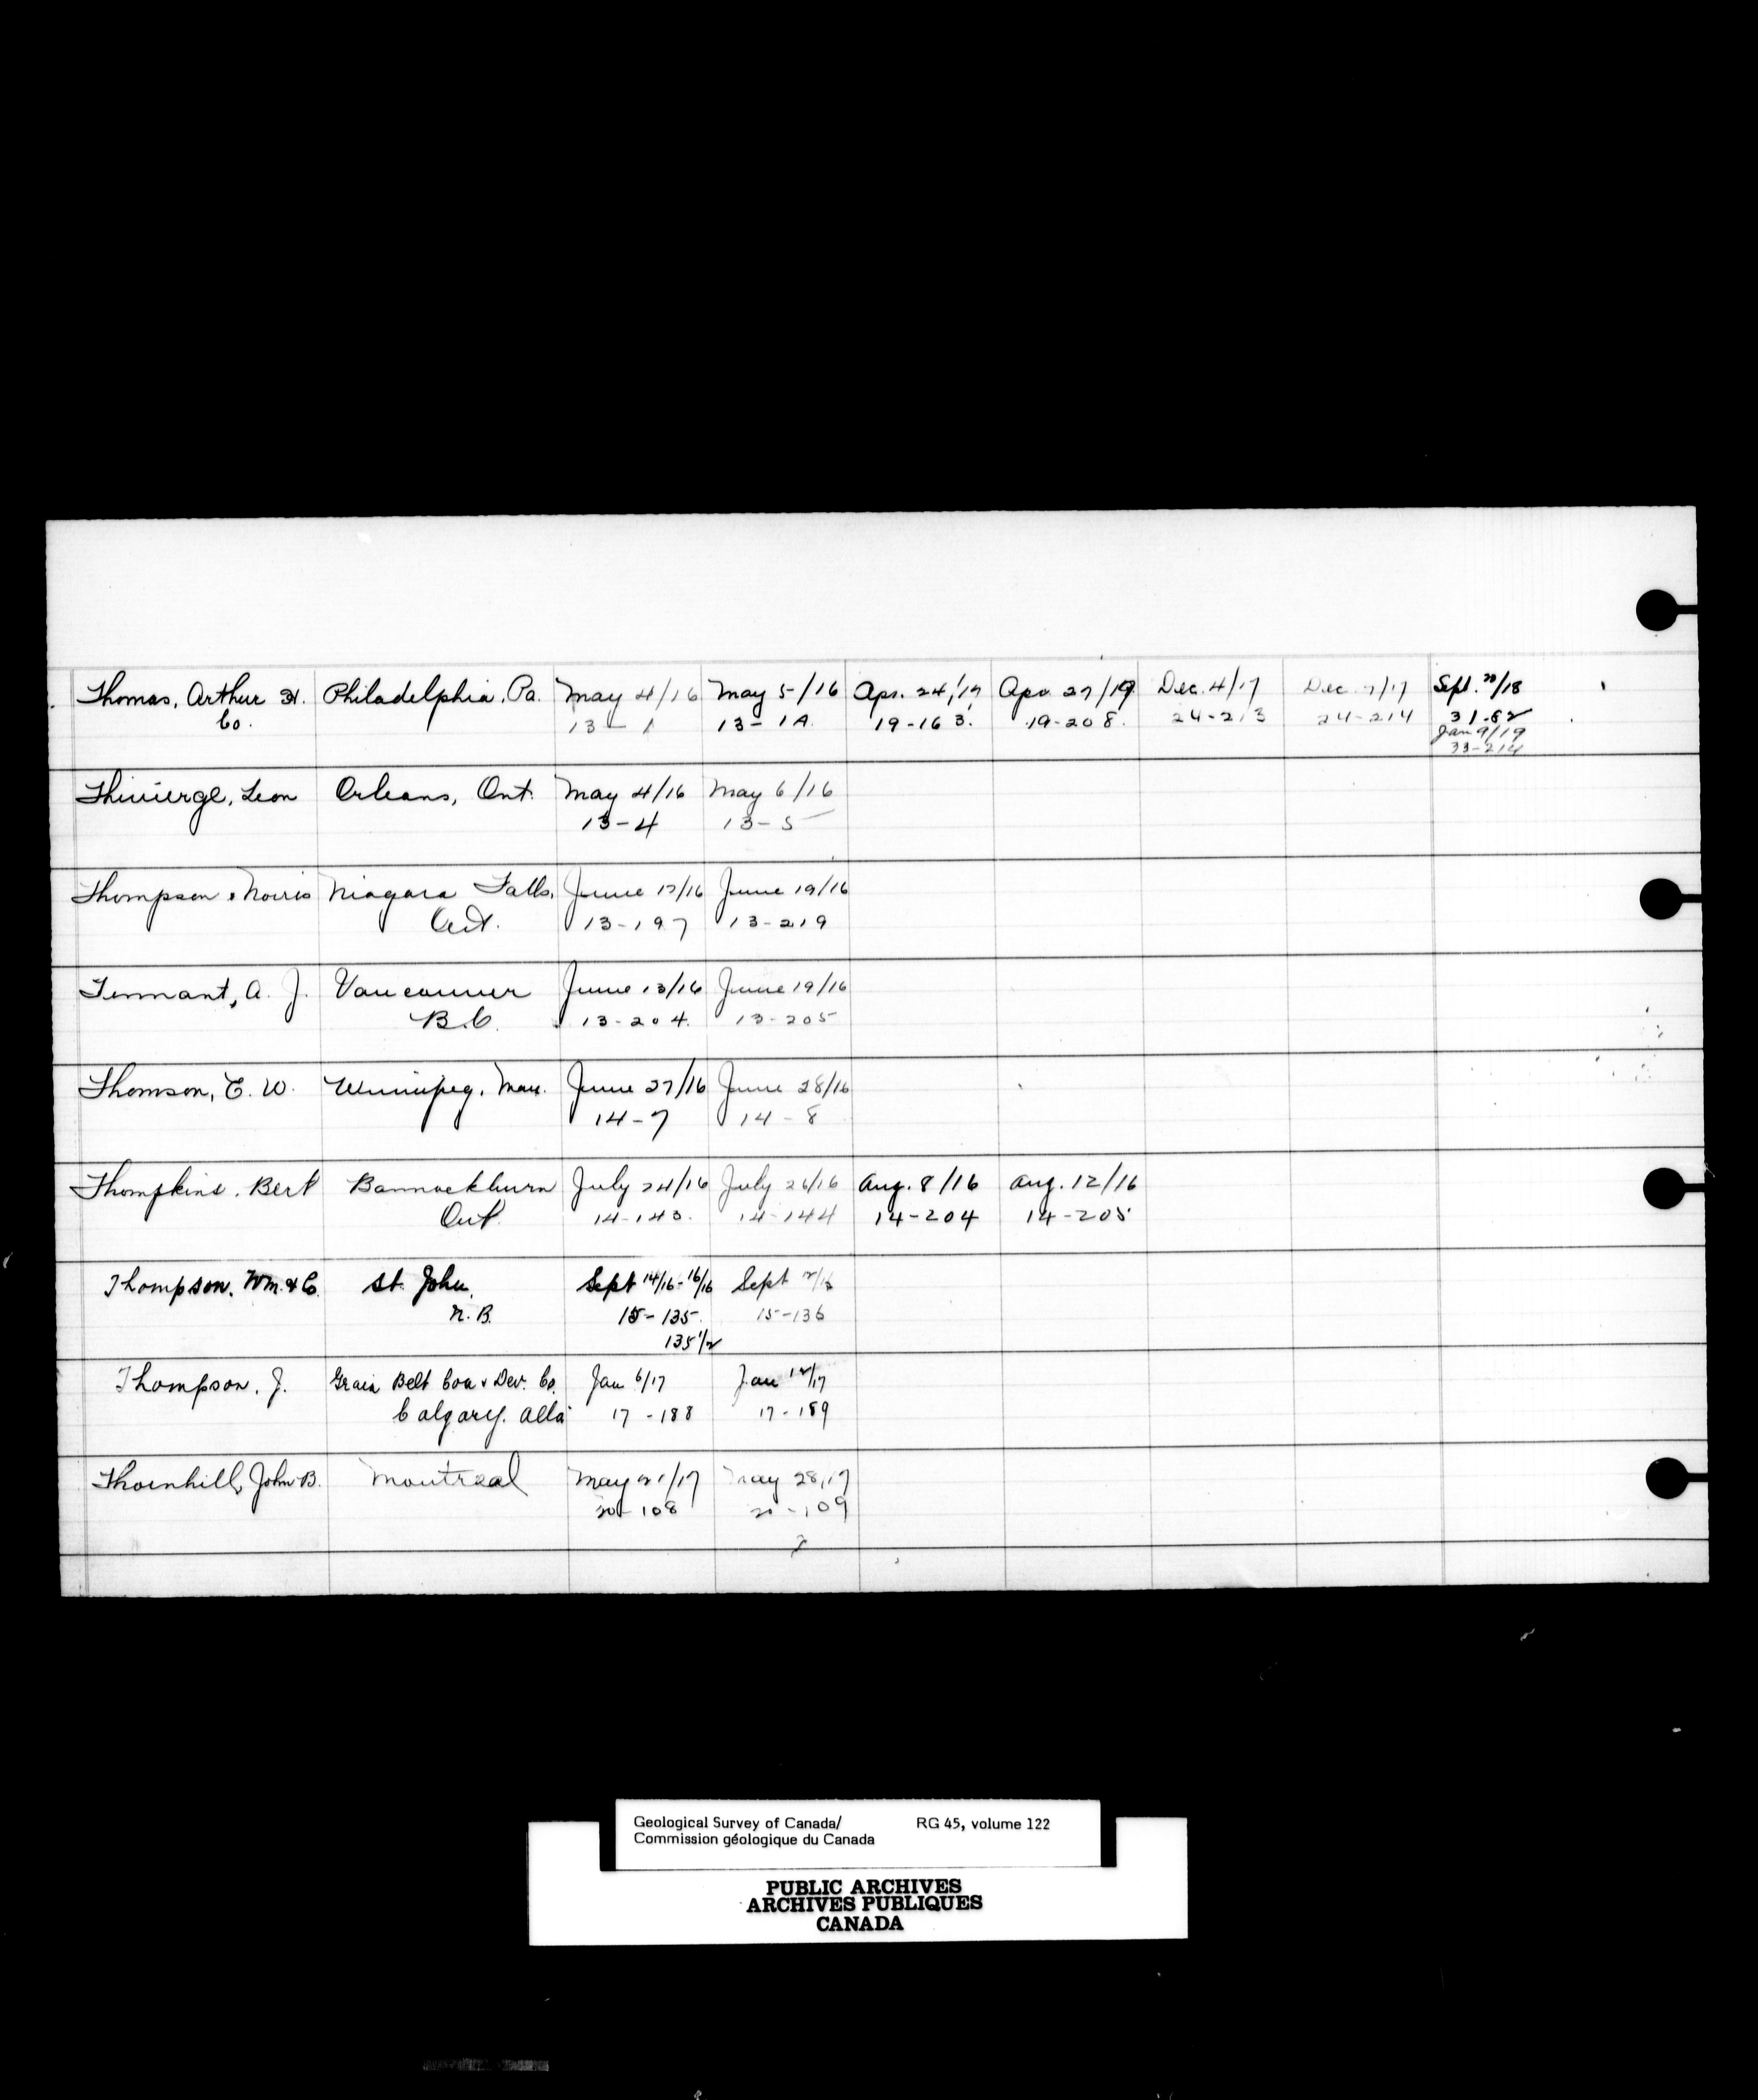 Thomas, Arthur H. Philadelphia, Pa. May 4/16 May 5/16 Apr. 24/17 Apr 27/17 Dec. 4/17 Dec. 7/17 Sept. 20/18
Co. 13-1 13-1A. 19-163. 19-208. 24-213 24-214 31-82
Jan 9/19
33-214
Thivierge, Leon Orleans, Ont. May 4/16 May 6/16
13-4 13-5
Thompson & Norris Niagara Falls, June 17/16 June 19/16
Ont. 13-197 13-219
Tennant, A. J. Vancouver June 13/16 June 19/16
B.C. 13-204. 13-205
Thomson, E. W. Winnipeg, Man. June 27/16 June 28/16
14-7 14-8
Thompkins, Bert Bannockburn July 24/16 July 26/16 Aug. 8/16 Aug. 12/16
Ont. 14-143. 14-144 14-204 14-205
Thompson, Wm. & C. St. John, Sept 14/16-16/16 Sept
N.B. 15-135. 15-136
135 1/2
Thompson, J. Grain Belt & Dev. Co. Jan 6/17 Jan 12/17
Calgary. Alta 17-188 17-189
Thornhill, John B. Montreal May 21/17 May 28,17
20-108 20-109
Geological Survey of Canada/ RG 45, volume 122
Commission géologique du Canada
PUBLIC ARCHIVES
ARCHIVES PUBLIQUES
CANADA